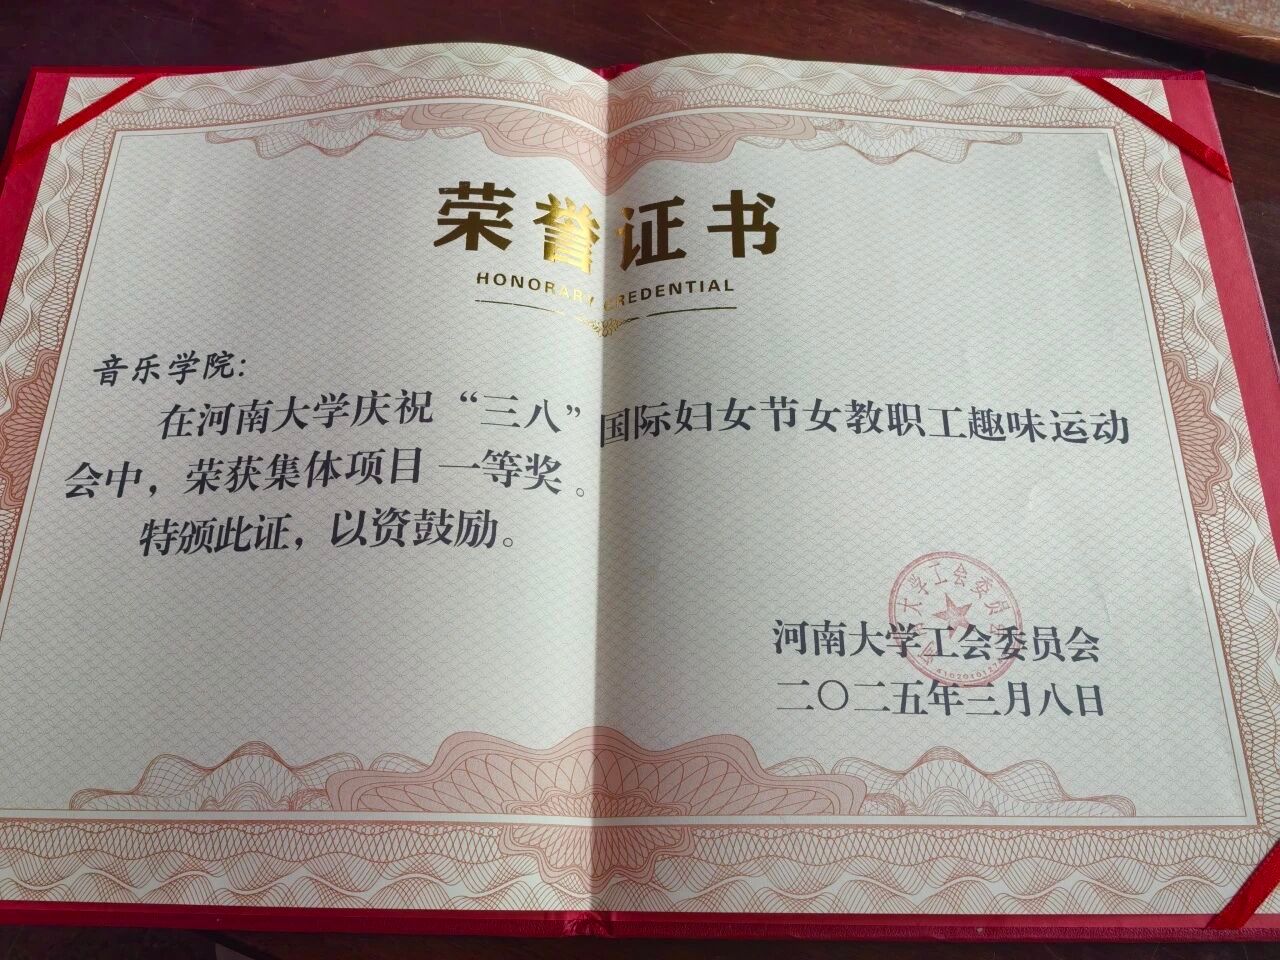 荣誉证书
HONORARY CREDENTIAL
音乐学院：
在河南大学庆祝“三八”国际妇女节女教职工趣味运动
会中，荣获集体项目 一等奖。
特颁此证，以资鼓励。
大学工会委员会
河南大学工会委员会
二〇二五年三月八日